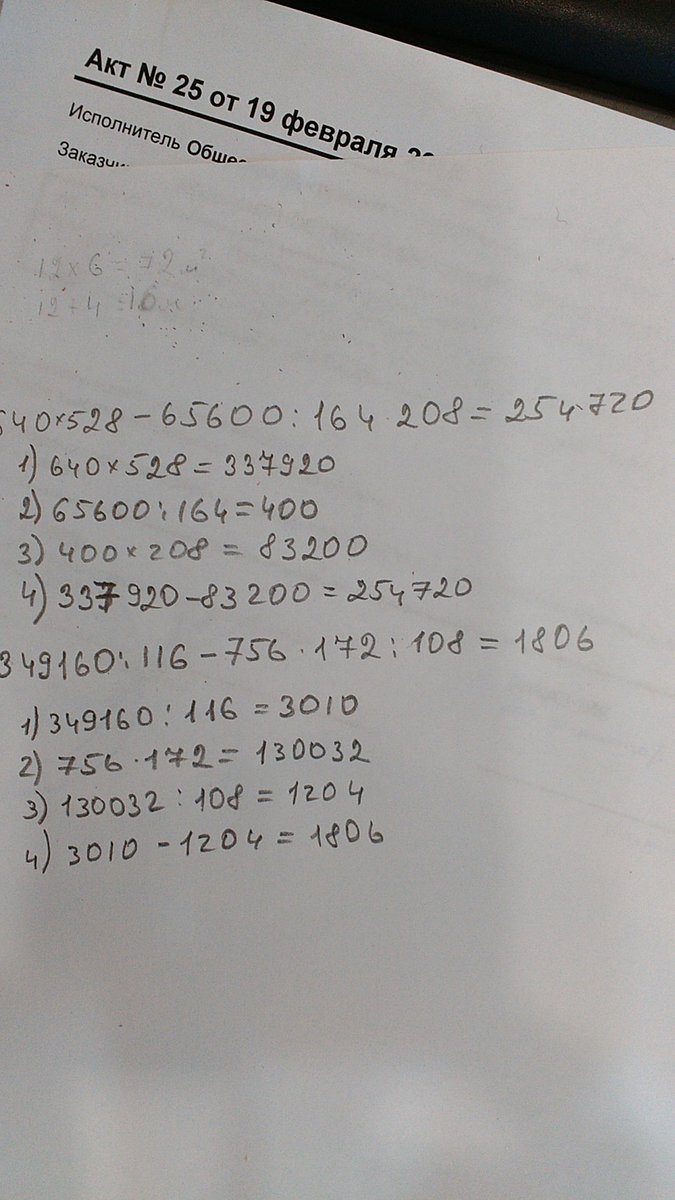 Акт № 25 от 19 февраля
Исполнитель Общес
Заказчи
12 × 6 = 72 м²
640×528 – 65600 : 164 · 208 = 254720
1) 640×528 = 337920
2) 65600 : 164 = 400
3) 400 × 208 = 83200
4) 337920 – 83200 = 254720
349160 : 116 – 756 · 172 : 108 = 1806
1) 349160 : 116 = 3010
2) 756 · 172 = 130032
3) 130032 : 108 = 1204
4) 3010 – 1204 = 1806